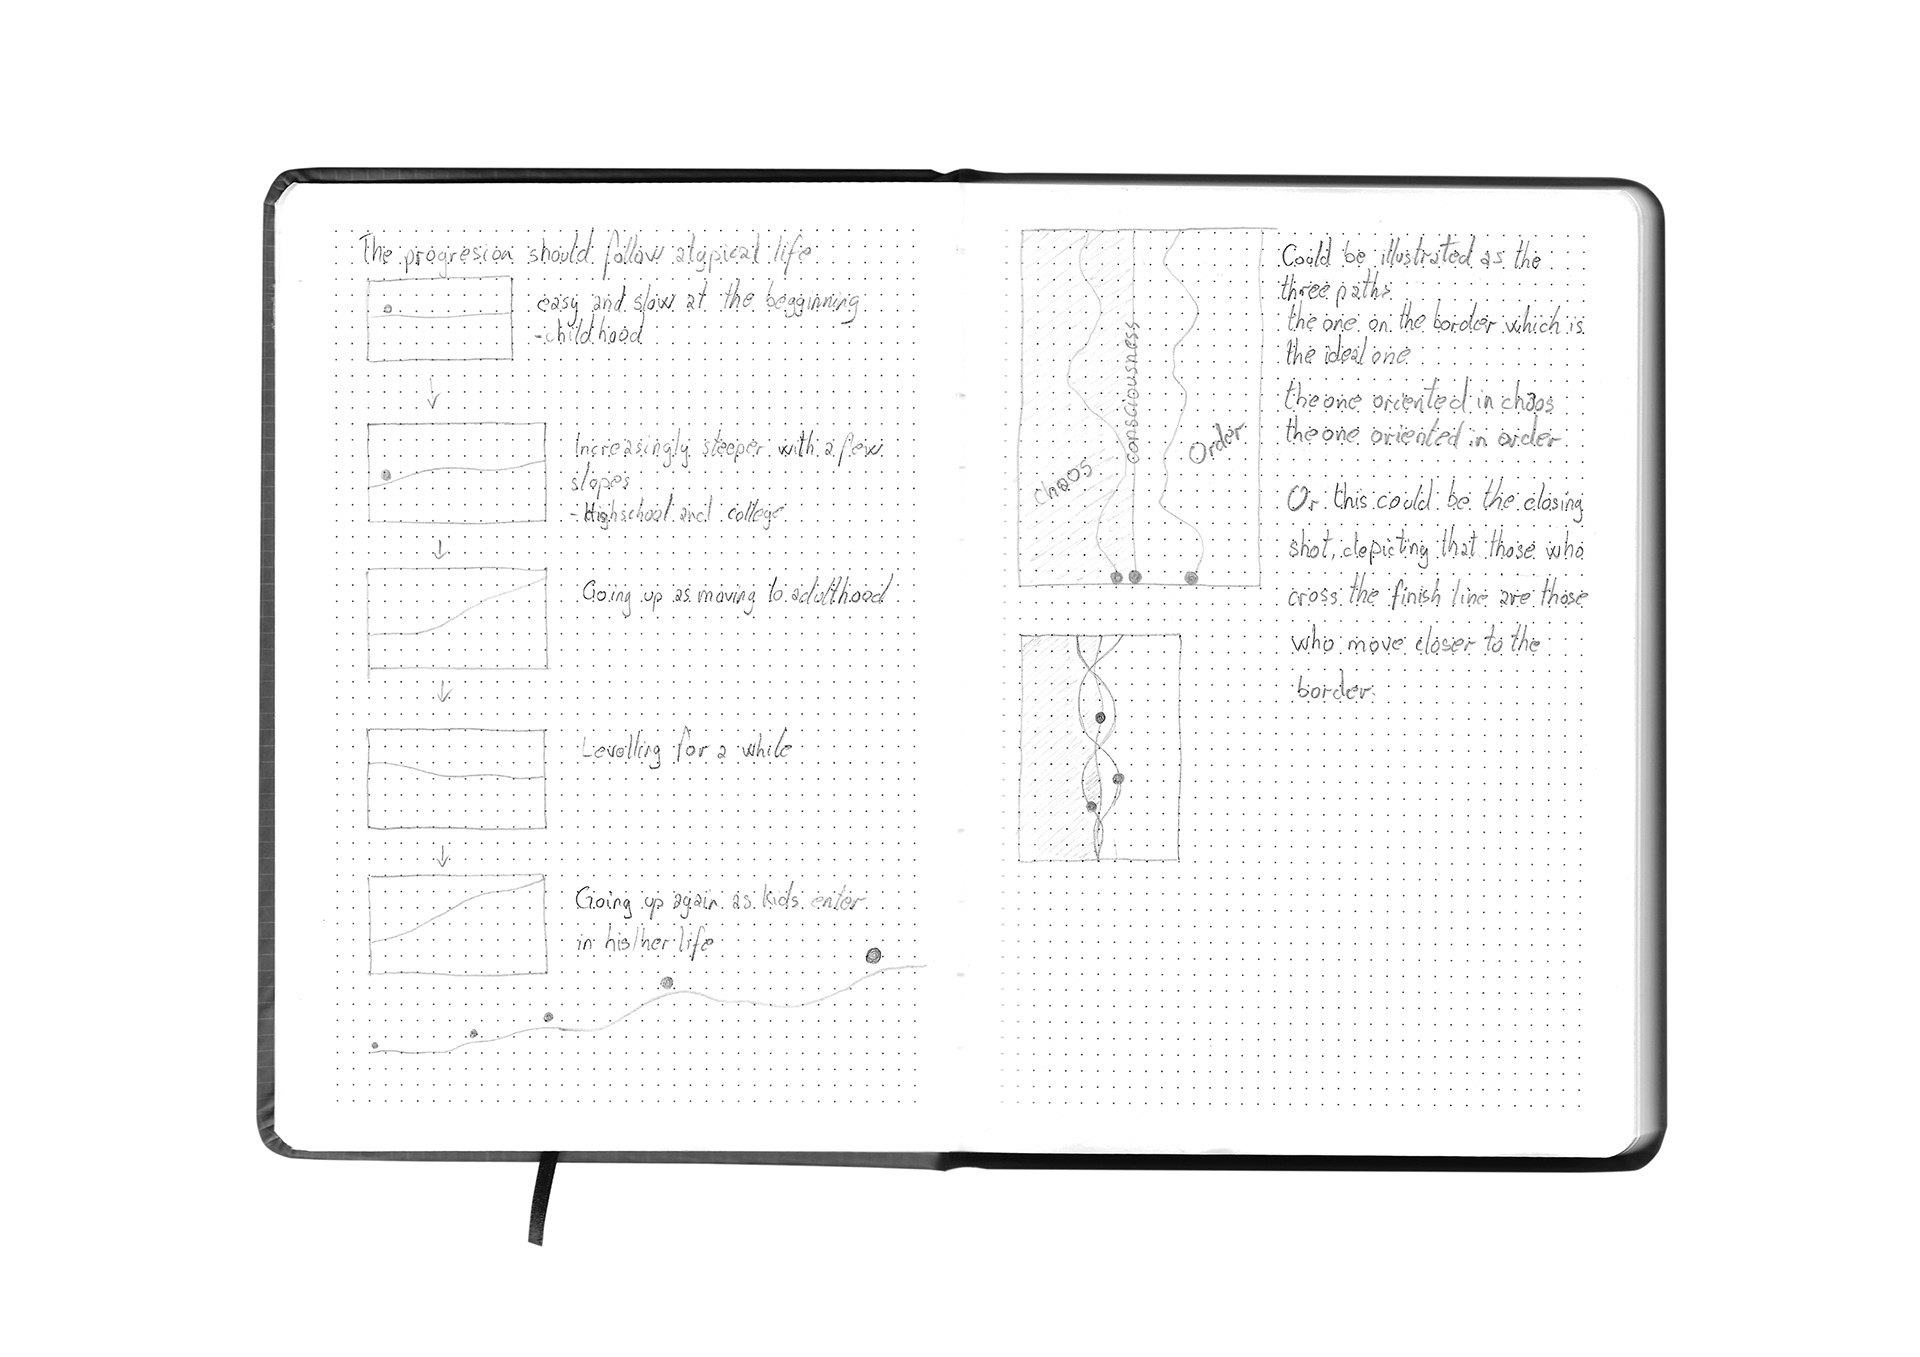 The progresion should follow a typical life
easy and slow at the begginning
-childhood
Increasingly steeper with a few
slopes
-Highschool and college
Going up as moving to adulthood
Levelling for a while
Going up again as kids enter
in his/her life
chaos
consciousness
Order
Could be illustrated as the
three paths
the one on the border which is
the ideal one
the one oriented in chaos
the one oriented in order
Or this could be the closing
shot, depicting that those who
cross the finish line are those
who move closer to the
border